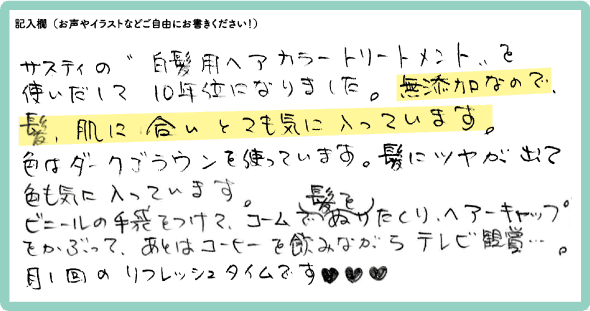 記入欄（お声やイラストなどご自由にお書きください！）
サスティの〝白髪用ヘアカラートリートメント〟を
使いだして10年位になりました。無添加なので、
髪、肌に合いとても気に入っています。
色はダークブラウンを使っています。髪にツヤが出て
色も気に入っています。
ビニールの手袋をつけて、コームで(髪を)ぬりたくり、ヘアーキャップ
をかぶって、あとはコーヒーを飲みながらテレビ観賞…。
月1回のリフレッシュタイムです♥♥♥